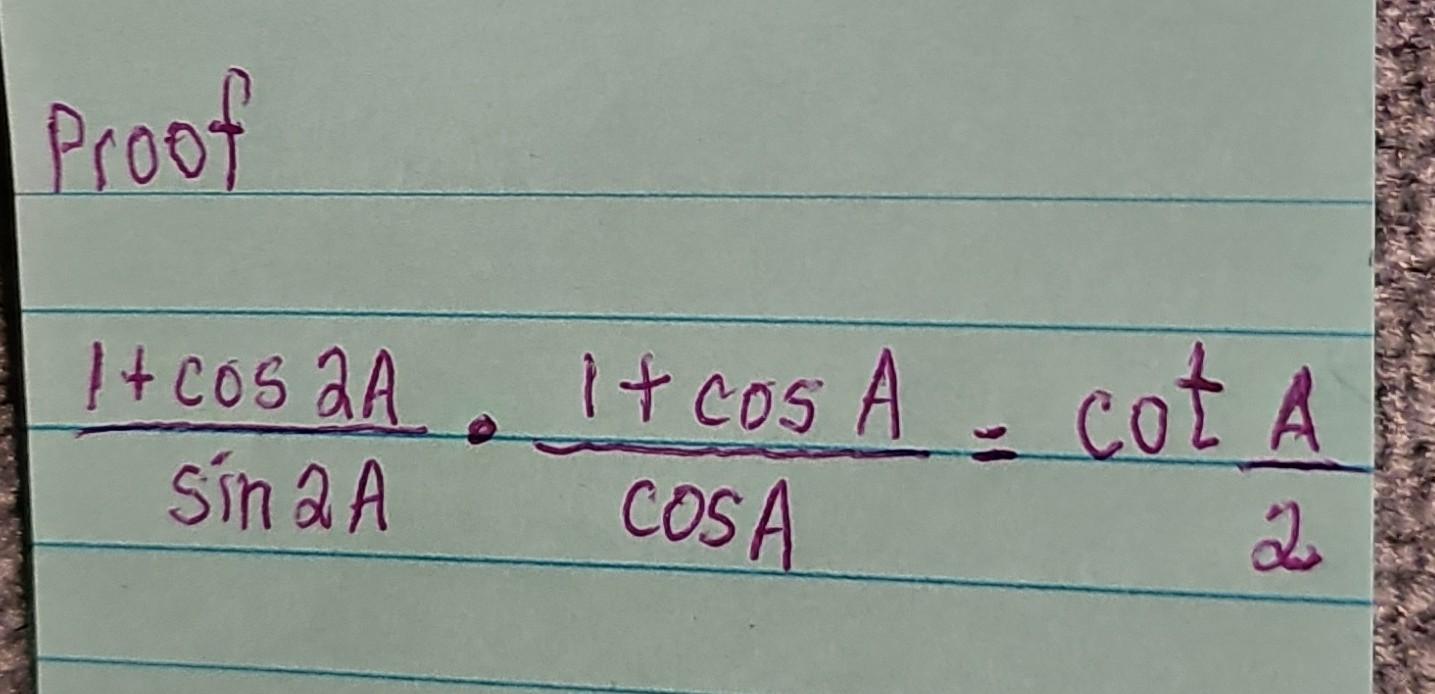 Proof
1 + cos 2A / sin 2A • 1 + cos A / cos A = cot A / 2